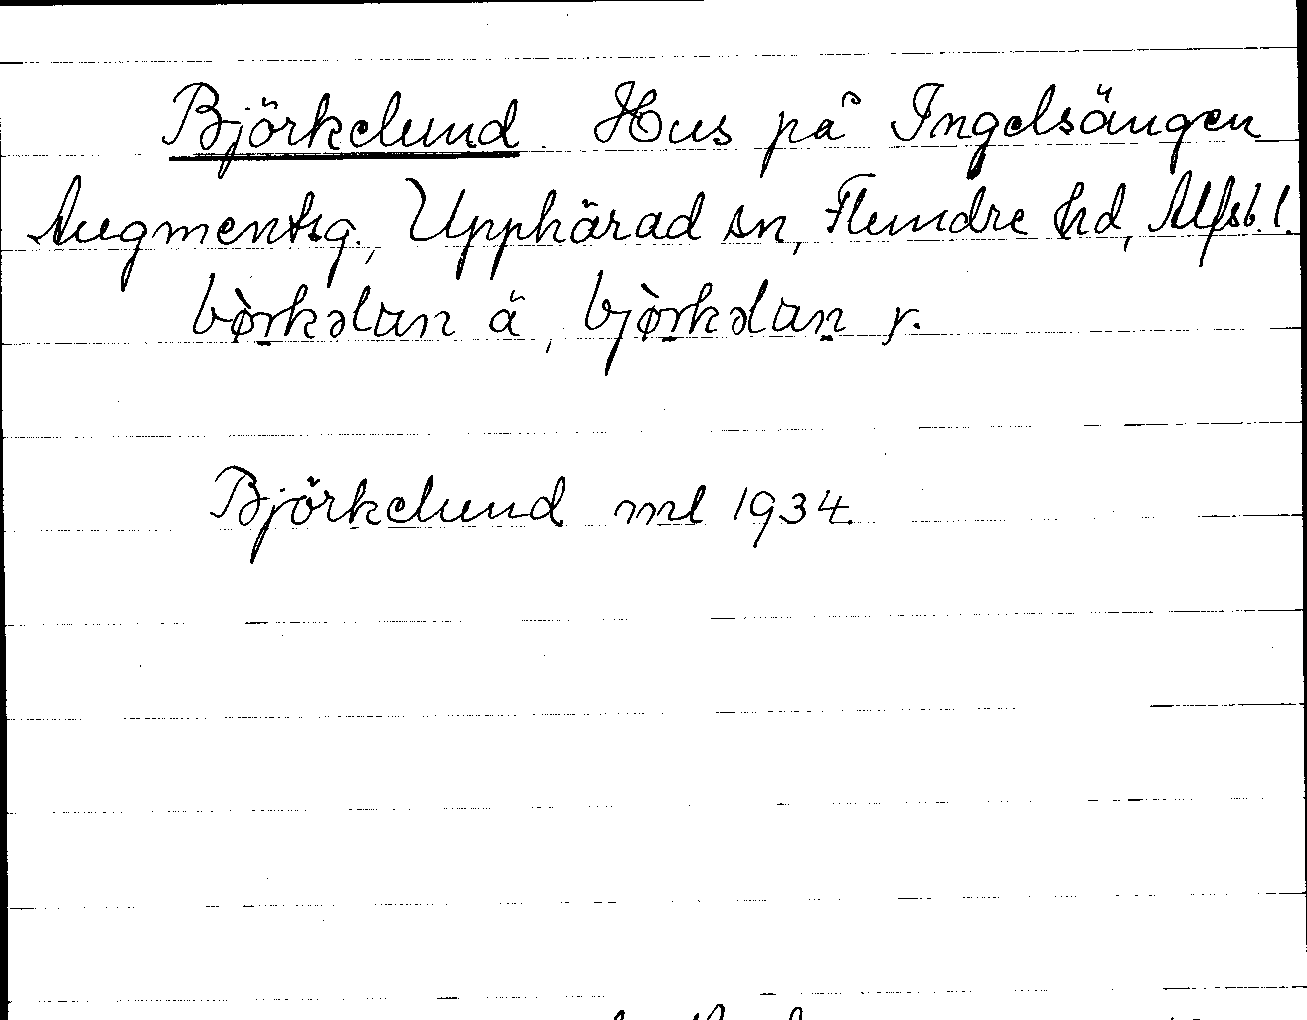 Björkelund. Hus på Ingelsängen
Augmentsg., Upphärad sn, Flundre hd, Älfsb. l.
bø̀rkəlan ä, bjø̀rkəlan y.
Björkelund ml 1934.